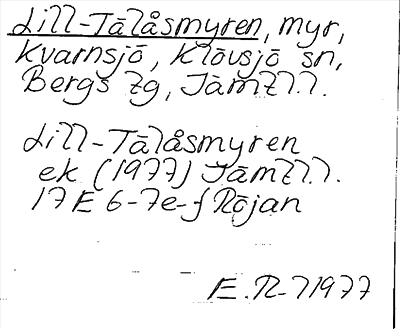 Lill-Tālåsmyren, myr,
Kvarnsjō, Klōvsjō sn,
Bergs tg, Jāmtl.l.
Lill-Tālåsmyren
ek (1977) Jāmtl.l.
17E 6-7e-f Rōjan
E.R-71977